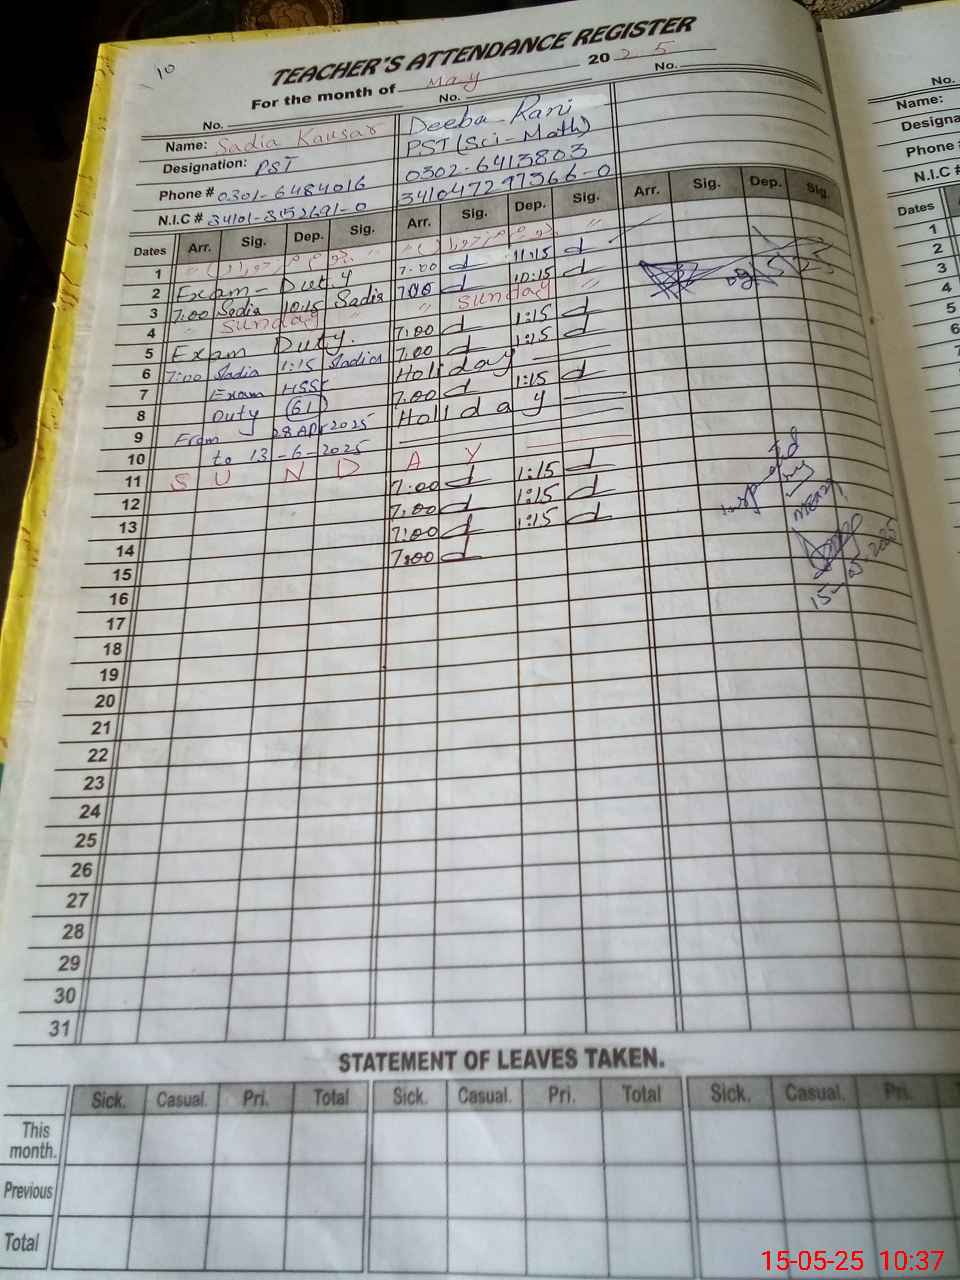 10
TEACHER'S ATTENDANCE REGISTER
For the month of May 2025
No. No. No.
Name: Sadia Kausar Deeba Rani
Designation: PST PST (Sci-Math)
Phone # 0301-6484016 0302-6413803
N.I.C # 34101-8152691-0 341047297366-0
Dates Arr. Sig. Dep. Sig. Arr. Sig. Dep. Sig. Arr. Sig. Dep. Sig.
1
2 Exam-Duty 7:00 d 11:15 d
3 7:00 Sadia 10:15 Sadia 7:00 d 10:15 d
4 Sunday Sunday
5 Exam Duty. 7:00 d 1:15 d
6 7:00 Sadia 1:15 Sadia 7:00 d 1:15 d
7 Exam HSSC Holiday
8 Duty (61) 7:00 d 1:15 d
9 From 28 Apr 2025 Holiday
10 to 13-6-2025
11 S U N D A Y
12 7:00 d 1:15 d
13 7:00 d 1:15 d
14 7:00 d 1:15 d
15 7:00 d
16
17
18
19
20
21
22
23
24
25
26
27
28
29
30
31
STATEMENT OF LEAVES TAKEN.
Sick. Casual. Pri. Total Sick. Casual. Pri. Total Sick. Casual. Pri.
This month.
Previous
Total
No.
Name:
Designa
Phone #
N.I.C #
Dates
1
2
3
4
5
6
15-05-25 10:37